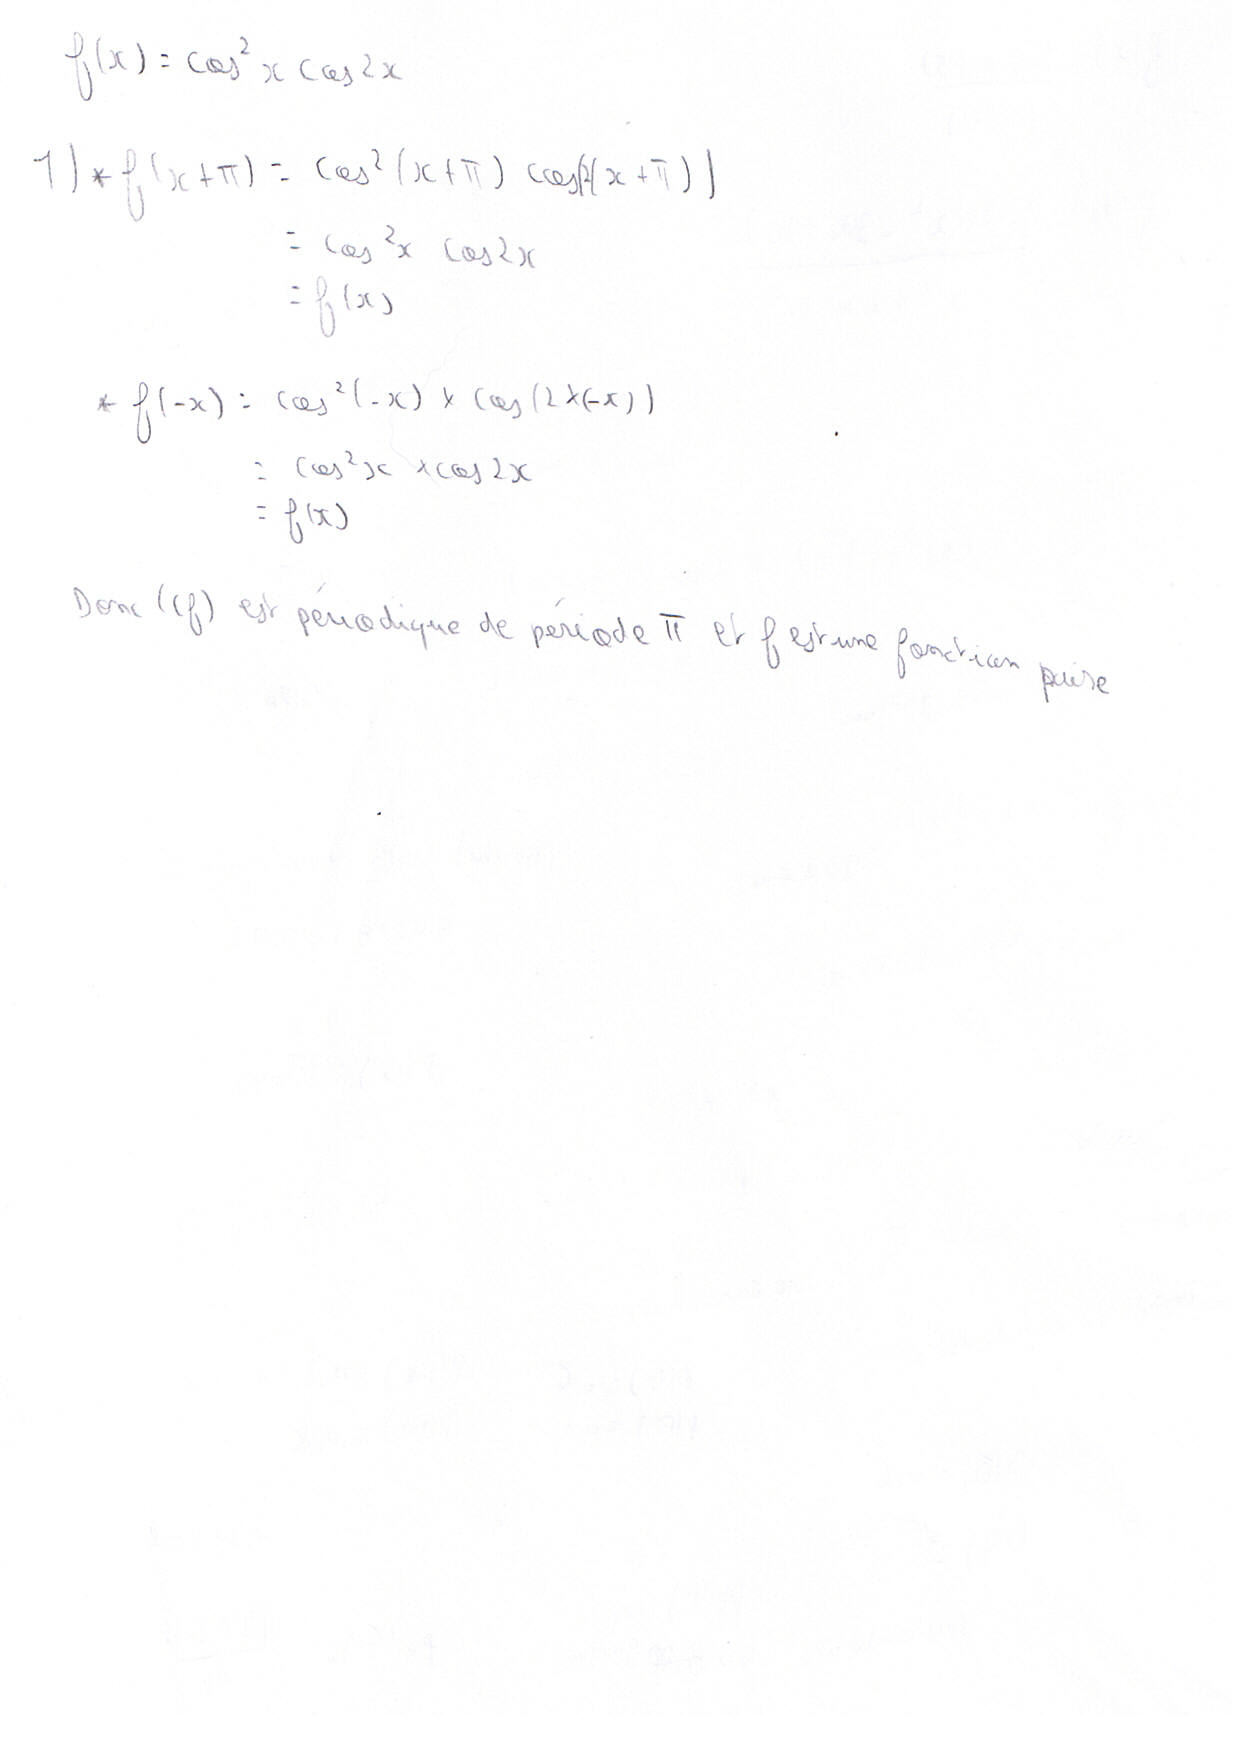 f(x) = cos² x cos 2x
1) * f(x+π) = cos² (x+π) cos(2(x+π))
= cos²x cos2x
= f(x)
* f(-x) = cos²(-x) × cos(2×(-x))
= cos²x × cos 2x
= f(x)
Donc (Cf) est périodique de période π et f est une fonction paire